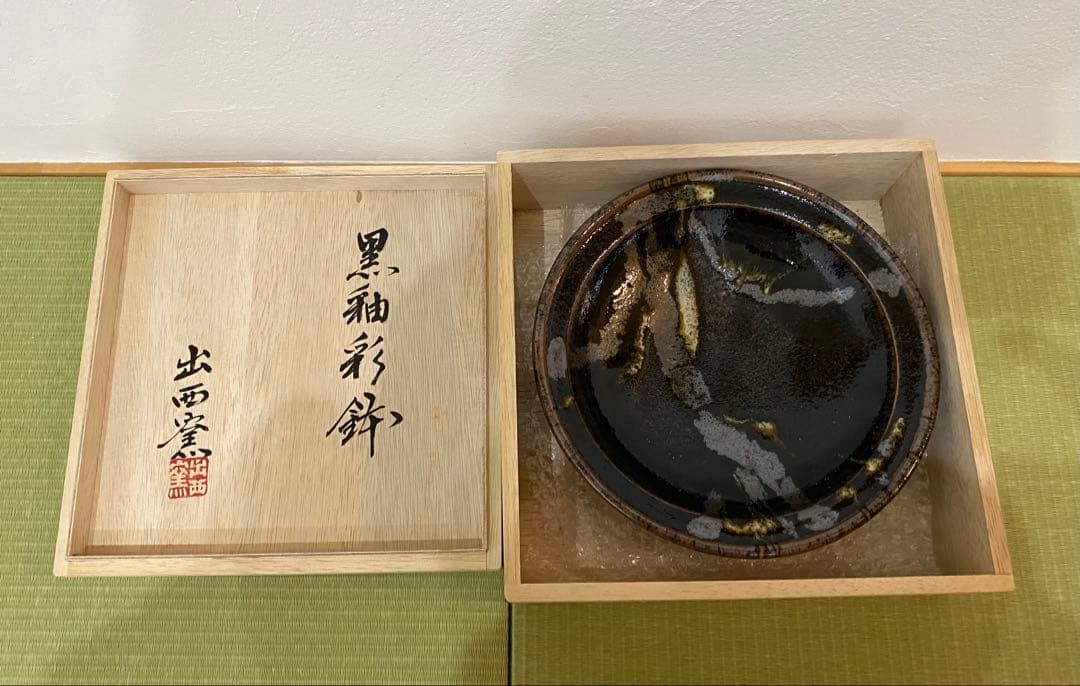 黒釉彩鉢
出西窯
出西窯